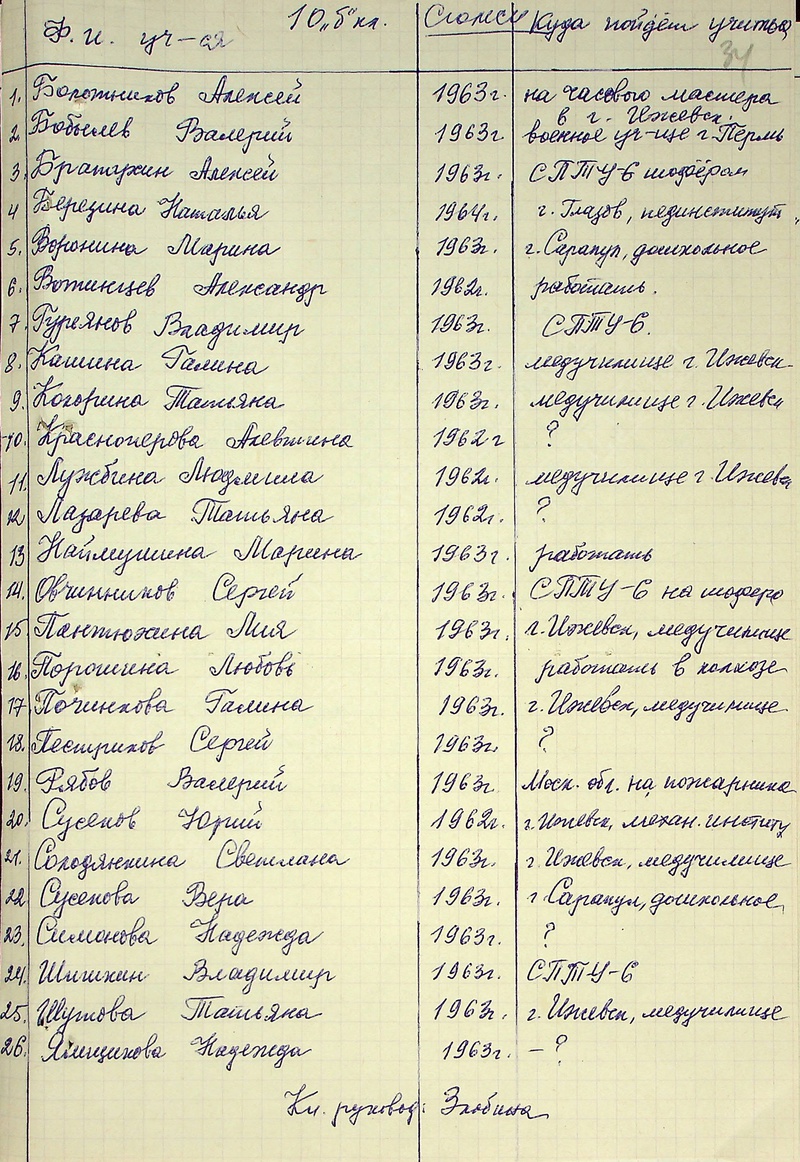 Ф. и. уч-ся 10 "б" кл. Куда пойдём учиться
34
1. Болотников Алексей 1963г. на часового мастера
в г. Ижевск.
2. Бобылев Валерий 1963г. военное уч-ще г. Пермь
3. Братухин Алексей 1963г. СПТУ-6 шофёром
4 Березина Наталья 1964г. г. Глазов, пединститут
5. Воронина Марина 1963г. г. Сарапул, дошкольное
6. Вотинцев Александр 1962г. работать.
7. Гуреянов Владимир 1963г. СПТУ-6.
8. Кашина Галина 1963г. медучилище г. Ижевск
9. Кокорина Татьяна 1963г. медучилище г. Ижевск
10. Красноперова Алевтина 1962г ?
11. Лужбина Людмила 1962г. медучилище г. Ижевск
12 Лазарева Татьяна 1962г. ?
13 Наймушина Марина 1963г. работать
14. Овчинников Сергей 1963г. СПТУ-6 на шофера
15 Пантюхина Лия 1963г. г. Ижевск, медучилище
16. Порошина Любовь 1963г. работать в колхозе
17 Починкова Галина 1963г. г. Ижевск, медучилище
18. Пестриков Сергей 1963г. ?
19. Рябов Валерий 1963г. Моск. обл. на пожарника
20. Сусеков Юрий 1962г. г. Ижевск, механ. институ
21. Солодянкина Светлана 1963г. г. Ижевск, медучилище
22. Сусекова Вера 1963г. г. Сарапул, дошкольное
23. Симонова Надежда 1963г. ?
24. Шишкин Владимир 1963г. СПТУ-6
25. Шутова Татьяна 1963г. г. Ижевск, медучилище
26. Ямщикова Надежда 1963г. – ?
Кл. руковод: Злобина